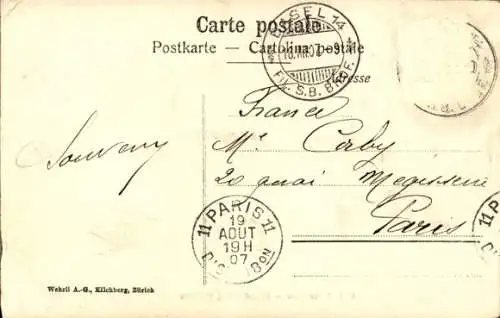 Carte postale
Postkarte – Cartolina postale
Adresse
BASEL 14
FIL. S.B. BHF.
France
Mr Corby
20 quai Megisserie
Paris
Souvenir
11 PARIS 11
19
AOUT
19H
07
11 PA
Wehrli A.-G., Kilchberg, Zürich